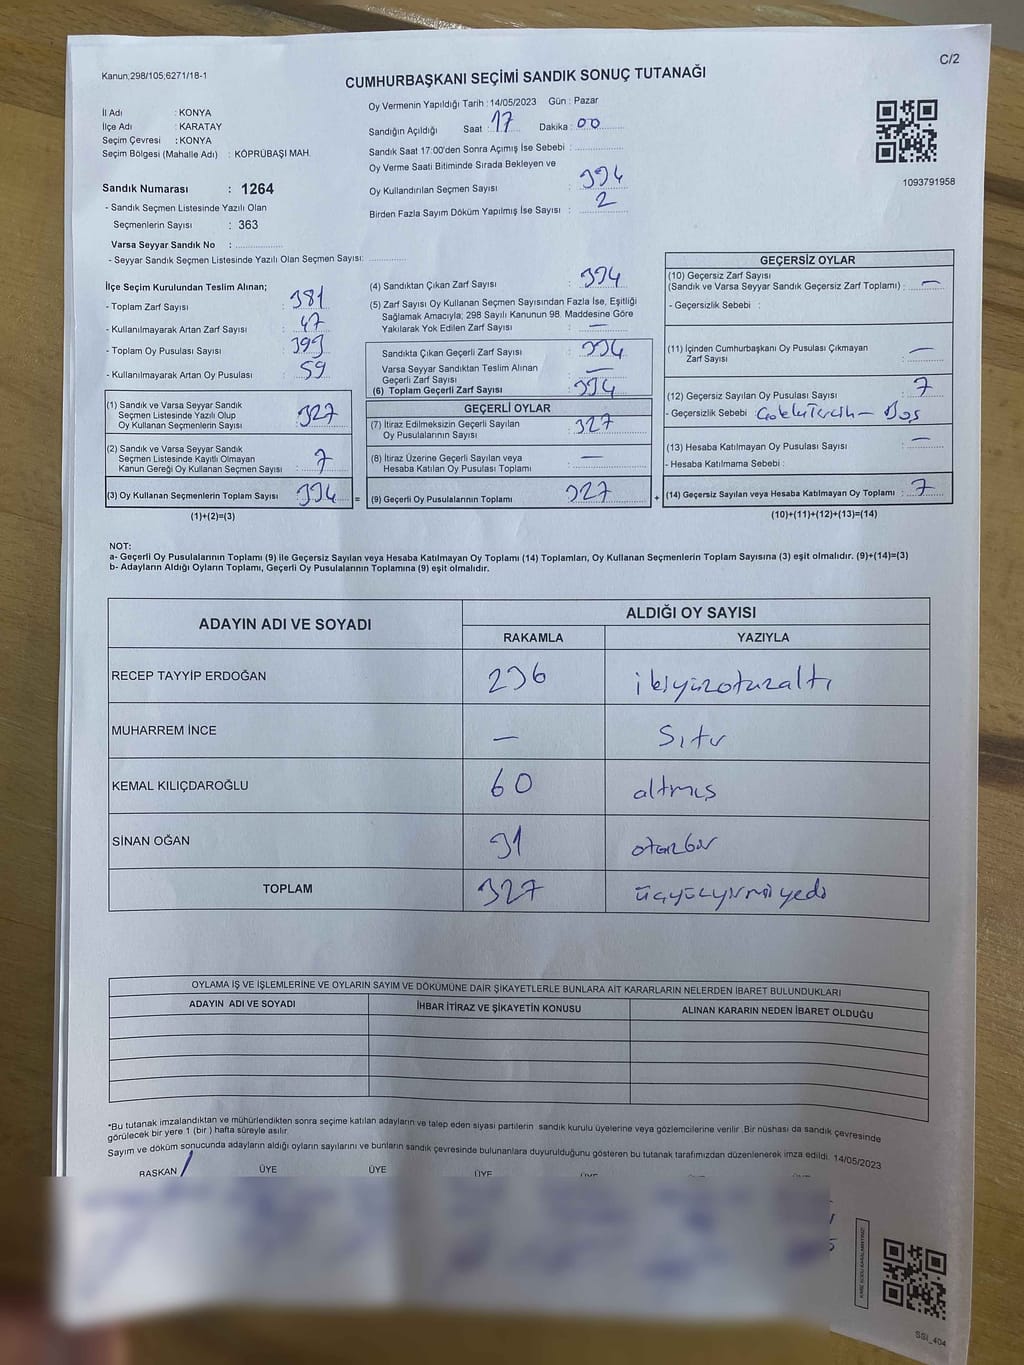 Kanun;298/105;6271/18-1
C/2
CUMHURBAŞKANI SEÇİMİ SANDIK SONUÇ TUTANAĞI
İl Adı : KONYA
İlçe Adı : KARATAY
Seçim Çevresi : KONYA
Seçim Bölgesi (Mahalle Adı) : KÖPRÜBAŞI MAH.
Oy Vermenin Yapıldığı Tarih : 14/05/2023 Gün : Pazar
Sandığın Açıldığı Saat : 17 Dakika : 00
Sandık Saat 17:00'den Sonra Açımış İse Sebebi :
Oy Verme Saati Bitiminde Sırada Bekleyen ve
Oy Kullandırılan Seçmen Sayısı : 334
Birden Fazla Sayım Döküm Yapılmış İse Sayısı : 2
1093791958
Sandık Numarası : 1264
- Sandık Seçmen Listesinde Yazılı Olan
Seçmenlerin Sayısı : 363
Varsa Seyyar Sandık No :
- Seyyar Sandık Seçmen Listesinde Yazılı Olan Seçmen Sayısı:
İlçe Seçim Kurulundan Teslim Alınan;
- Toplam Zarf Sayısı : 381
- Kullanılmayarak Artan Zarf Sayısı : 47
- Toplam Oy Pusulası Sayısı : 393
- Kullanılmayarak Artan Oy Pusulası : 59
(1) Sandık ve Varsa Seyyar Sandık
Seçmen Listesinde Yazılı Olup
Oy Kullanan Seçmenlerin Sayısı : 327
(2) Sandık ve Varsa Seyyar Sandık
Seçmen Listesinde Kayıtlı Olmayan
Kanun Gereği Oy Kullanan Seçmen Sayısı : 7
(3) Oy Kullanan Seçmenlerin Toplam Sayısı : 334 =
(1)+(2)=(3)
(4) Sandıktan Çıkan Zarf Sayısı : 334
(5) Zarf Sayısı Oy Kullanan Seçmen Sayısından Fazla İse, Eşitliği
Sağlamak Amacıyla; 298 Sayılı Kanunun 98. Maddesine Göre
Yakılarak Yok Edilen Zarf Sayısı : —
Sandıkta Çıkan Geçerli Zarf Sayısı : 334
Varsa Seyyar Sandıktan Teslim Alınan
Geçerli Zarf Sayısı : —
(6) Toplam Geçerli Zarf Sayısı : 334
GEÇERLİ OYLAR
(7) İtiraz Edilmeksizin Geçerli Sayılan
Oy Pusulalarının Sayısı : 327
(8) İtiraz Üzerine Geçerli Sayılan veya
Hesaba Katılan Oy Pusulası Toplamı : —
(9) Geçerli Oy Pusulalarının Toplamı : 327 +
GEÇERSİZ OYLAR
(10) Geçersiz Zarf Sayısı
(Sandık ve Varsa Seyyar Sandık Geçersiz Zarf Toplamı) : —
- Geçersizlik Sebebi :
(11) İçinden Cumhurbaşkanı Oy Pusulası Çıkmayan
Zarf Sayısı : —
(12) Geçersiz Sayılan Oy Pusulası Sayısı : 7
- Geçersizlik Sebebi : Çoklu Tercih - Boş
(13) Hesaba Katılmayan Oy Pusulası Sayısı : —
- Hesaba Katılmama Sebebi :
(14) Geçersiz Sayılan veya Hesaba Katılmayan Oy Toplamı : 7
(10)+(11)+(12)+(13)=(14)
NOT:
a- Geçerli Oy Pusulalarının Toplamı (9) ile Geçersiz Sayılan veya Hesaba Katılmayan Oy Toplamı (14) Toplamları, Oy Kullanan Seçmenlerin Toplam Sayısına (3) eşit olmalıdır. (9)+(14)=(3)
b- Adayların Aldığı Oyların Toplamı, Geçerli Oy Pusulalarının Toplamına (9) eşit olmalıdır.
ADAYIN ADI VE SOYADI ALDIĞI OY SAYISI
RAKAMLA YAZIYLA
RECEP TAYYİP ERDOĞAN 236 ikiyüzotuzaltı
MUHARREM İNCE — Sıfır
KEMAL KILIÇDAROĞLU 60 altmış
SİNAN OĞAN 31 otuzbir
TOPLAM 327 üçyüzyirmiyedi
OYLAMA İŞ VE İŞLEMLERİNE VE OYLARIN SAYIM VE DÖKÜMÜNE DAİR ŞİKAYETLERLE BUNLARA AİT KARARLARIN NELERDEN İBARET BULUNDUKLARI
ADAYIN ADI VE SOYADI İHBAR İTİRAZ VE ŞİKAYETİN KONUSU ALINAN KARARIN NEDEN İBARET OLDUĞU
*Bu tutanak imzalandıktan ve mühürlendikten sonra seçime katılan adayların ve talep eden siyasi partilerin sandık kurulu üyelerine veya gözlemcilerine verilir. Bir nüshası da sandık çevresinde
görülecek bir yere 1 (bir ) hafta süreyle asılır.
Sayım ve döküm sonucunda adayların aldığı oyların sayılarını ve bunların sandık çevresinde bulunanlara duyurulduğunu gösteren bu tutanak tarafımızdan düzenlenerek imza edildi. 14/05/2023
BAŞKAN ÜYE ÜYE ÜYE
SSİ_404